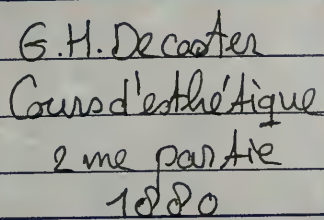 G.H. Decoster
Cours d'esthétique
2 me partie
1880